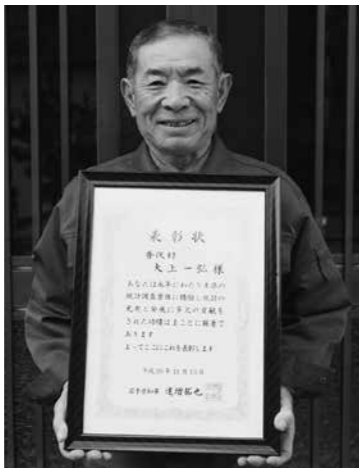 表彰状
普代村
大上一弘 様
あなたは永年にわたり本県の
統計調査業務に精励し統計の
充実と発展に多大の貢献を
された功績はまことに顕著で
あります
よってここにこれを表彰します
平成 年11月
岩手県知事 達増拓也